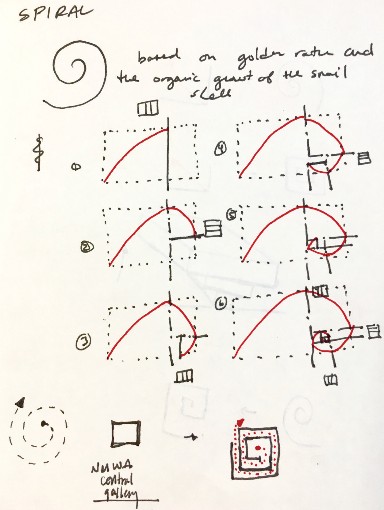 SPIRAL
based on golden ratio and
the organic growt of the snail
shell
① ④
② ⑤
③ ⑥
NMWA
central
gallery